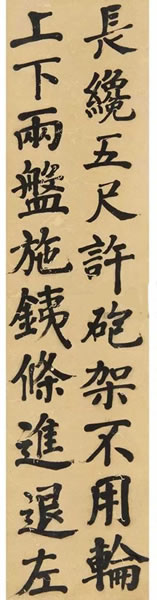 長纔五尺許砲架不用輪
上下兩盤施鐵條進退左